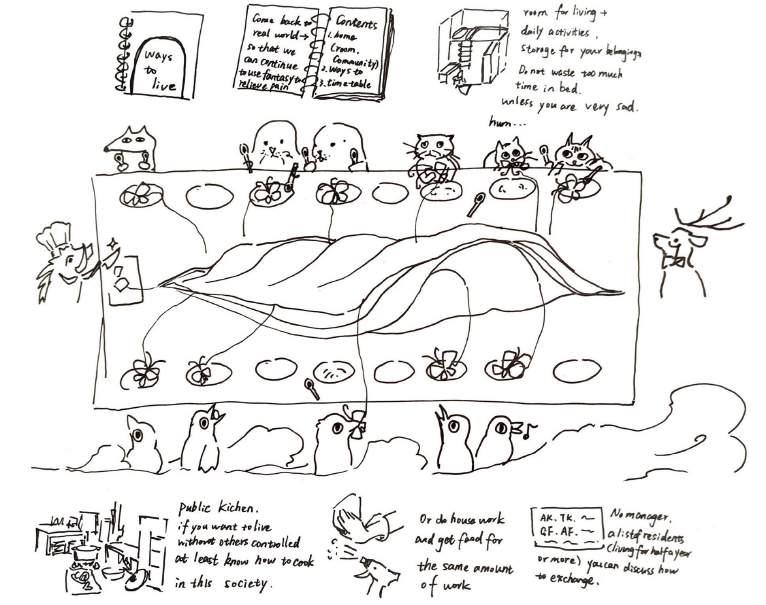 ways
to
live
Come back to
real world→
so that we
can continue
to use fantasy to
relieve pain
Contents
1. home
(room.
Community)
2. ways to
3. time-table
room for living +
daily activities.
storage for your belongings
Do not waste too much
time in bed.
unless you are very sad.
hum...
Public kichen.
if you want to live
without others controlled
at least know how to cook
in this society.
Or do house work
and got food for
the same amount
of work
AK. TK. ~
GF. AF. ~
No manager.
a list of residents
(living for half a year
or more) you can discuss how
to exchange.